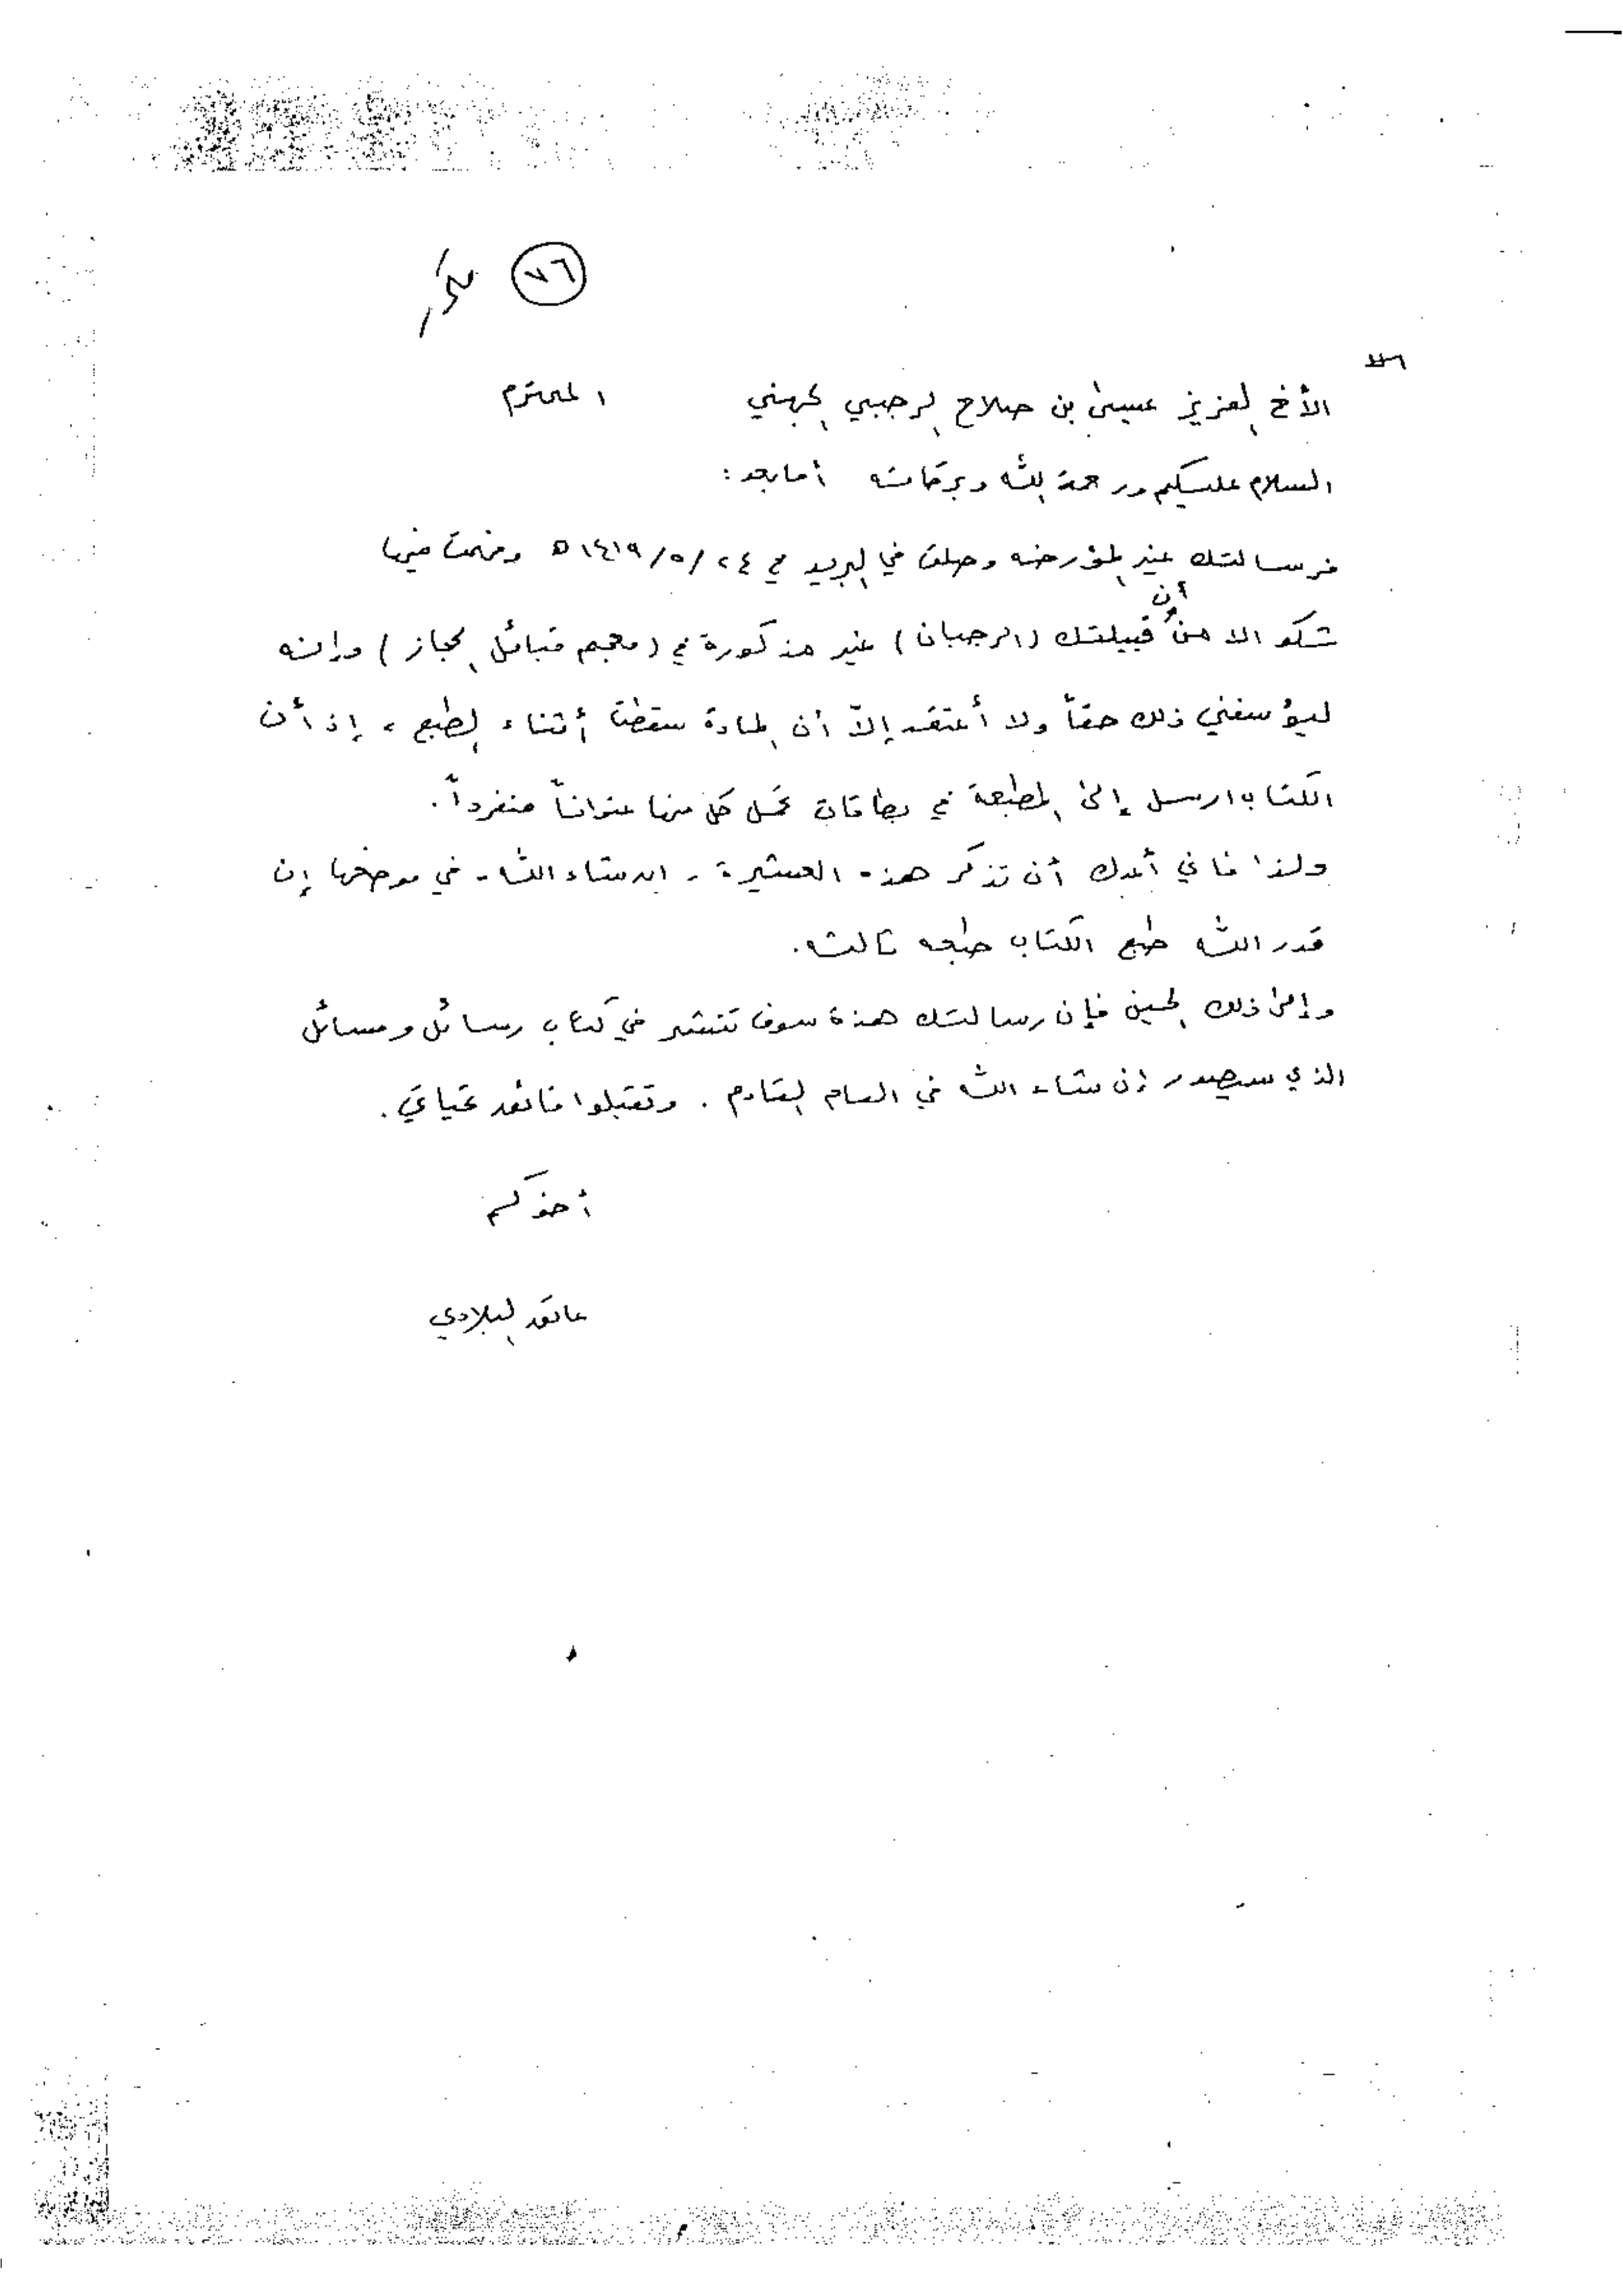 ٧٦ مكرر
الأخ العزيز عيسى بن صلاح الرجبي الجهني المحترم
السلام عليكم ورحمة الله وبركاته أما بعد:
فرسالتك غير المؤرخه وصلت في البريد في ٢٤/٥/١٤١٩ ه وفهمت فيها
أن
شكوالا من قبيلتك (الرجبان) غير مذكورة في (معجم قبائل الحجاز) وإنه
ليؤسفني ذلك حقاً ولا أعتقد إلاّ أن المادة سقطت أثناء الطبع، إذ أن
الكتاب ارسل إلى المطبعة في بطاقات تحمل كل منها عنواناً منفرداً.
ولذا فاني أعدك أن تذكر هذه العشيرة - ان شاء الله - في موضعها إن
قدر الله طبع الكتاب طبعه ثالثه.
وإلى ذلك الحين فإن رسالتك هذه سوف تنشر في كتاب رسائل ومسائل
الذي سيصدر إن شاء الله في العام القادم. وتقبلوا فائق تحياتي.
أخوكم
عاتق البلادي